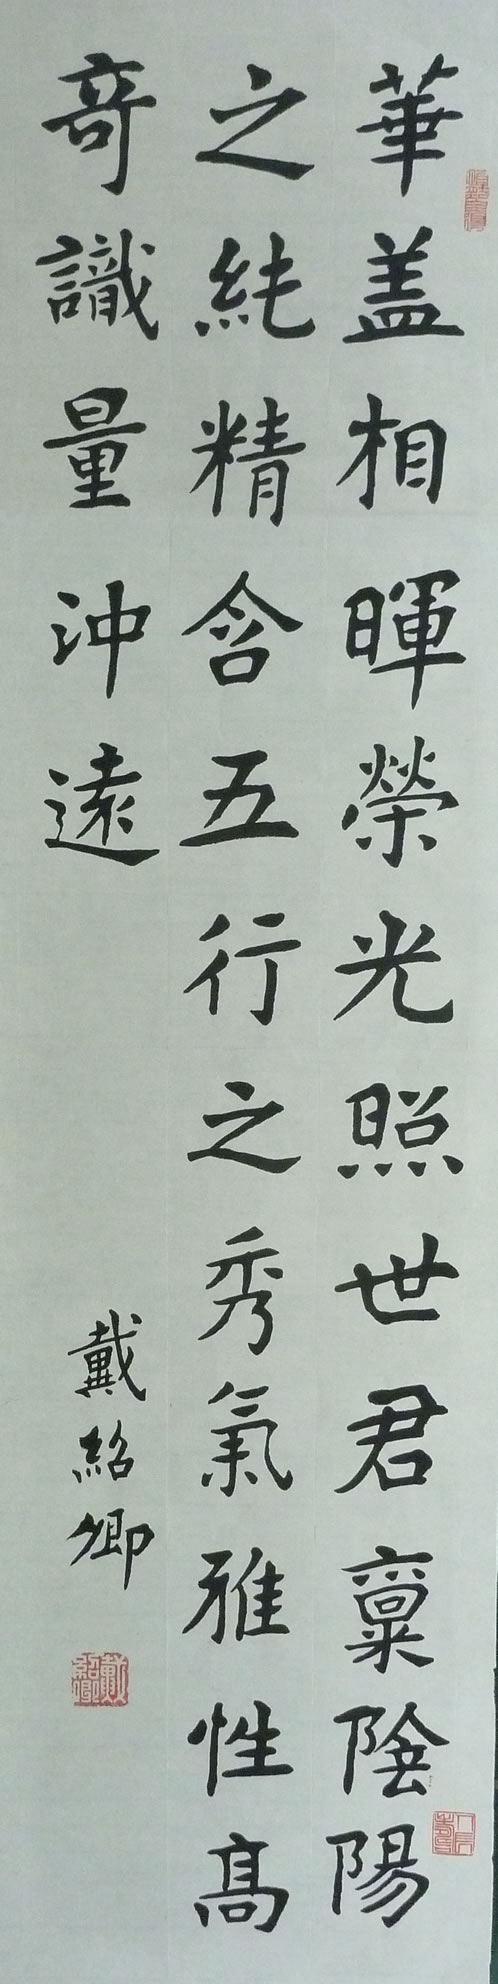 華盖相暉榮光照世君稟陰陽
之純精含五行之秀氣雅性高
奇識量沖遠
戴紹卿
戴紹卿